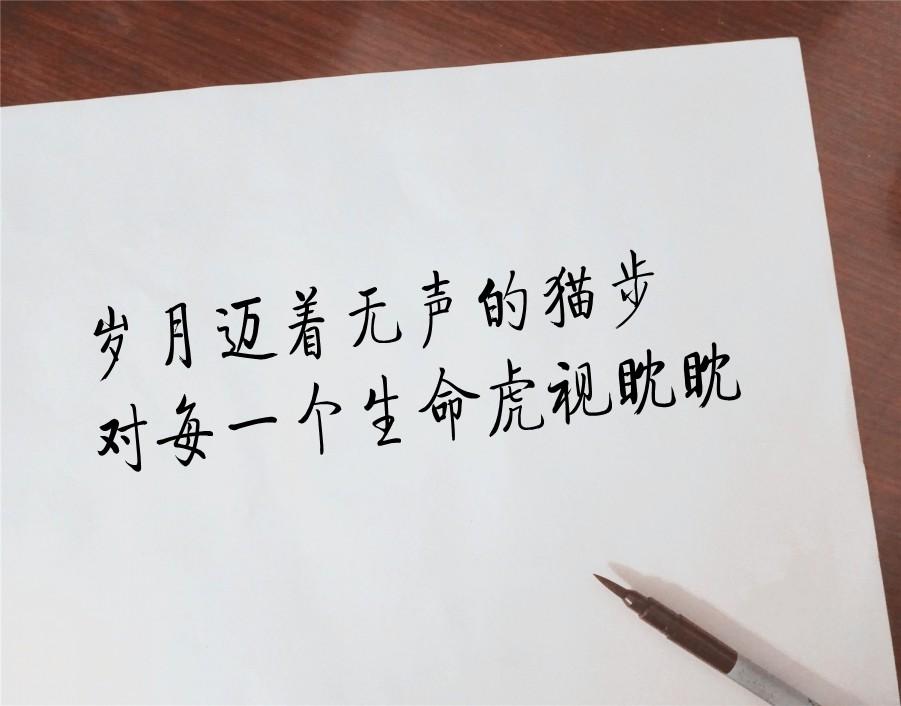 岁月迈着无声的猫步
对每一个生命虎视眈眈